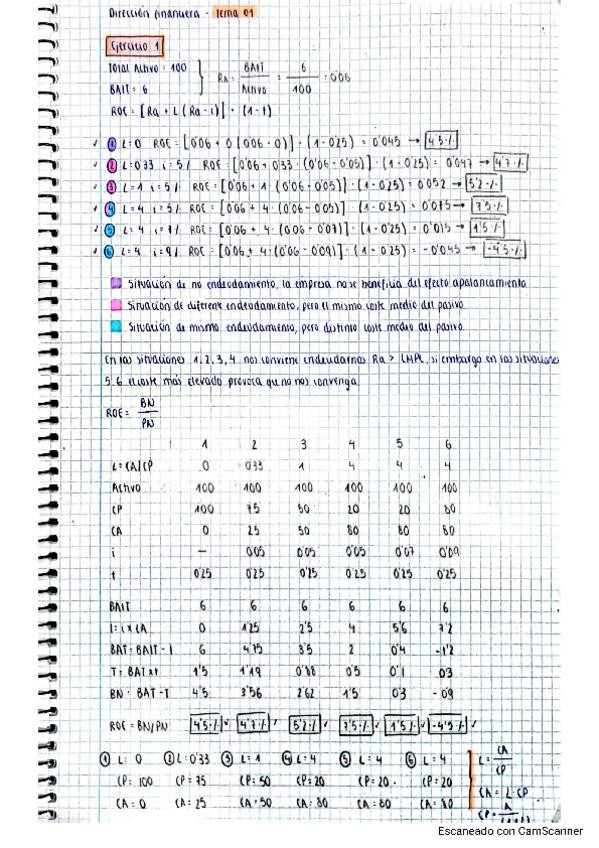 Dirección financiera - Tema 01
Ejercicio 1
Total Activo = 100
BAIT = 6
Ra = BAIT / Activo = 6 / 100 = 0'06
ROE = [Ra + L (Ra - i)] · (1 - t)
① L=0 ROE = [0'06 + 0 (0'06 - 0)] · (1 - 0'25) = 0'045 → 4'5%
② L=0'33 i=5% ROE = [0'06 + 0'33 · (0'06 - 0'05)] · (1 - 0'25) = 0'047 → 4'7%
③ L=1 i=5% ROE = [0'06 + 1 · (0'06 - 0'05)] · (1 - 0'25) = 0'052 → 5'2%
④ L=4 i=5% ROE = [0'06 + 4 · (0'06 - 0'05)] · (1 - 0'25) = 0'075 → 7'5%
⑤ L=4 i=7% ROE = [0'06 + 4 · (0'06 - 0'07)] · (1 - 0'25) = 0'015 → 1'5%
⑥ L=4 i=9% ROE = [0'06 + 4 · (0'06 - 0'09)] · (1 - 0'25) = -0'045 → -4'5%
Situación de no endeudamiento, la empresa no se beneficia del efecto apalancamiento
Situación de diferente endeudamiento, pero el mismo coste medio del pasivo.
Situación de mismo endeudamiento, pero distinto coste medio del pasivo.
En las situaciones 1, 2, 3, 4 nos conviene endeudarnos Ra > CMPL, si embargo en las situaciones
5, 6 el coste más elevado provoca que no nos convenga
ROE = BN / PN
1 2 3 4 5 6
L = CA/CP 0 0'33 1 4 4 4
Activo 100 100 100 100 100 100
CP 100 75 50 20 20 20
CA 0 25 50 80 80 80
i - 0'05 0'05 0'05 0'07 0'09
t 0'25 0'25 0'25 0'25 0'25 0'25
BAIT 6 6 6 6 6 6
I = i x CA 0 1'25 2'5 4 5'6 7'2
BAT = BAIT - I 6 4'75 3'5 2 0'4 -1'2
T = BAT x t 1'5 1'19 0'88 0'5 0'1 03
BN = BAT - T 4'5 3'56 2'62 1'5 0'3 -0'9
ROE = BN/PN 4'5% 4'7% 5'2% 7'5% 1'5% -4'5%
① L = 0 ② L = 0'33 ③ L = 1 ④ L = 4 ⑤ L = 4 ⑥ L = 4 L = CA / CP
CP = 100 CP = 75 CP = 50 CP = 20 CP = 20 CP = 20 CA = L · CP
CA = 0 CA = 25 CA = 50 CA = 80 CA = 80 CA = 80 CP = A
Escaneado con CamScanner